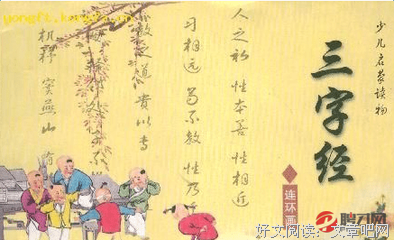 少儿启蒙读物
三字经
连环画
人之初 性本善 性相近
习相远 苟不教 性乃
教之道 贵以专
机杼 窦燕山 有
好文阅读：文章吧网